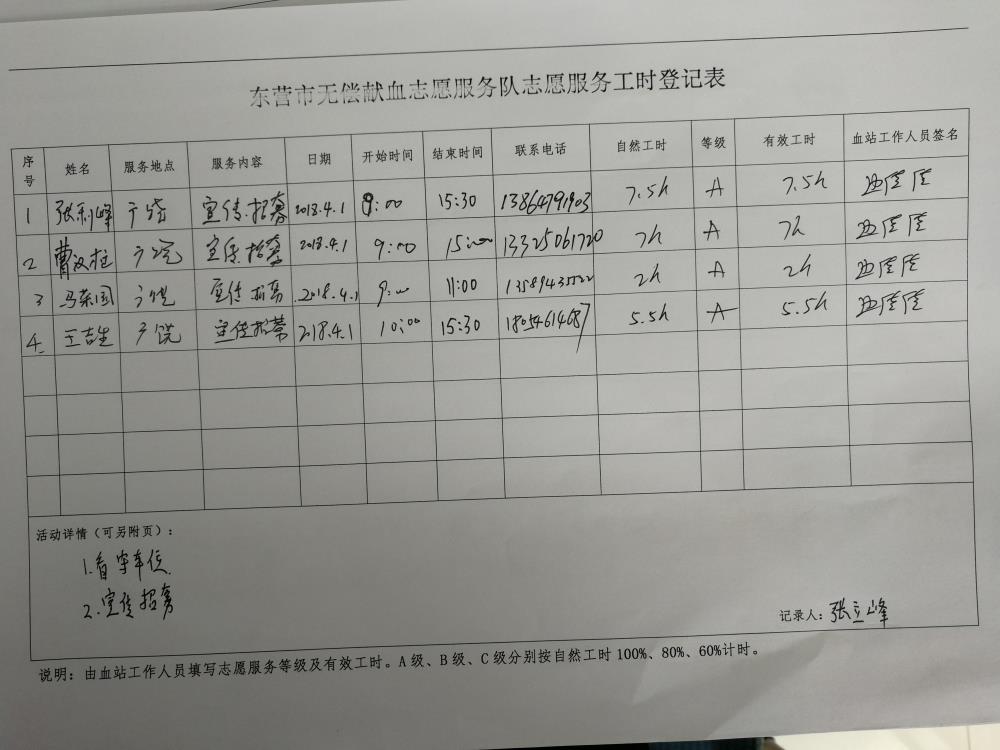 东营市无偿献血志愿服务队志愿服务工时登记表
序号 姓名 服务地点 服务内容 日期 开始时间 结束时间 联系电话 自然工时 等级 有效工时 血站工作人员签名
1 张利峰 广饶 宣传.招募 2018.4.1 9:00 15:30 13864791903 7.5h A 7.5h
2 曹汉柱 广饶 宣传.招募 2018.4.1 9:00 15:00 13325061720 7h A 7h
3 马荣国 广饶 宣传招募 2018.4.1 9:00 11:00 2h A 2h
4 王吉生 广饶 宣传招募 2018.4.1 10:00 15:30 18054614687 5.5h A 5.5h
活动详情（可另附页）：
1.看守车位
2.宣传招募
记录人：张立峰
说明：由血站工作人员填写志愿服务等级及有效工时。A级、B级、C级分别按自然工时100%、80%、60%计时。